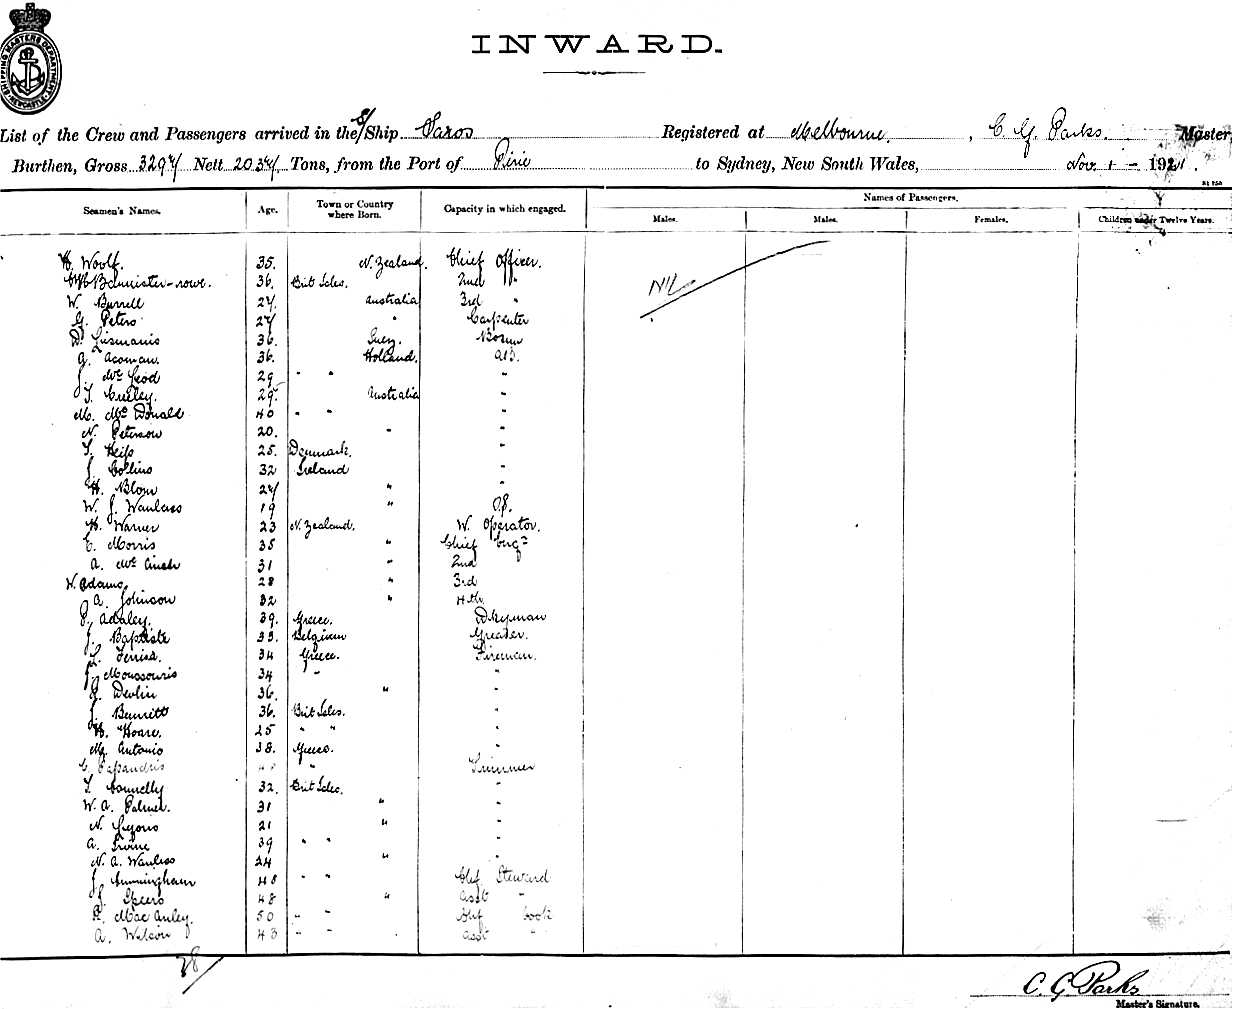 SHIPPING MASTERS DEPARTMENT NEWCASTLE
INWARD.
List of the Crew and Passengers arrived in the S/Ship Saros Registered at Melbourne, C G Parks. Master
Burthen, Gross 3297 Nett 2037 Tons, from the Port of Pirie to Sydney, New South Wales, Nov. 1 - 1921.
Seamen's Names. Age. Town or Country where Born. Capacity in which engaged. Names of Passengers.
Males. Males. Females. Children under Twelve Years.
H. Woolf. 35. N. Zealand. Chief Officer.
Bannister-rowe. 36. Brit Isles. 2nd "
NIL
W. Burrell 27. Australia 3rd "
G. Peters 27 " Carpenter
D. Lusmanis 36. Suez. Bosun
G. Acoman. 36. Holland. AB.
J. McLeod 29 " " "
T. Curley. 29. Australia "
M. McDonald 40 " " "
N. Peterson 20. " "
T. Heiss 25. Denmark. "
J. Collins 32 Ireland "
H. Blom 27 " "
W. J. Wanless 19 " OS.
H. Warner 23 N. Zealand. W. Operator.
C. Morris 35 " Chief Engr
A. Mc 31 " 2nd
W. Adams. 28 " 3rd
A. Johnson 32 " 4th
P. Adaley. 39. Greece. Dkyman
J. Baptiste 33. Belgium Greaser.
L. Ferrisa. 34 Greece. Fireman.
J. Moussouris 34 " "
P. Devlin 36. " "
J. Bennett 36. Brit Isles. "
H. Hoare. 25 " " "
M. Antonio 38. Greece. "
C. Casandris 48 " Trimmer
T. Connelly 32. Brit Isles. "
W. A. Palmer. 31 " "
N. Lyons 21 " "
A. Irvine 39 " " "
N. A. Wanless 24 " "
J. Cunningham 48 " " Chf Steward
J. Speers 48 " Asst "
R. MacAuley. 50 " " Chf Cook
A. Watson 43 " " Asst "
38
C. G. Parks
Master's Signature.